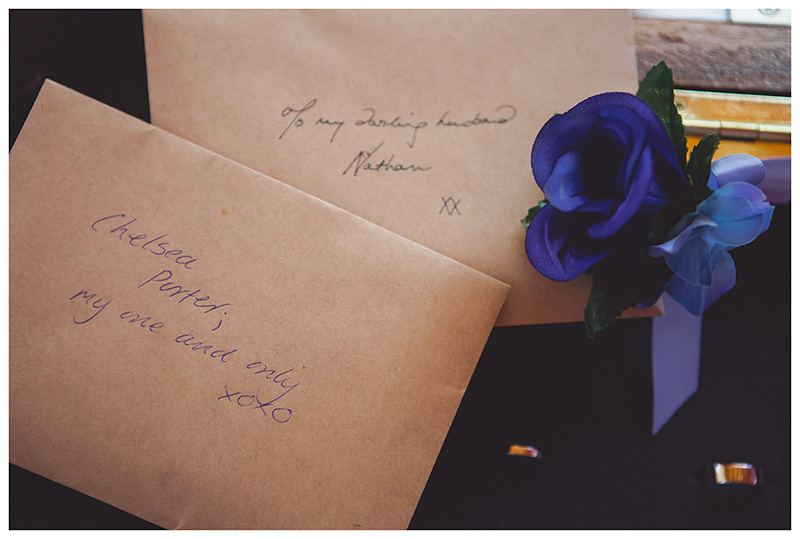 To my darling husband
Nathan
XX
Chelsea
Porter;
my one and only
xoxo